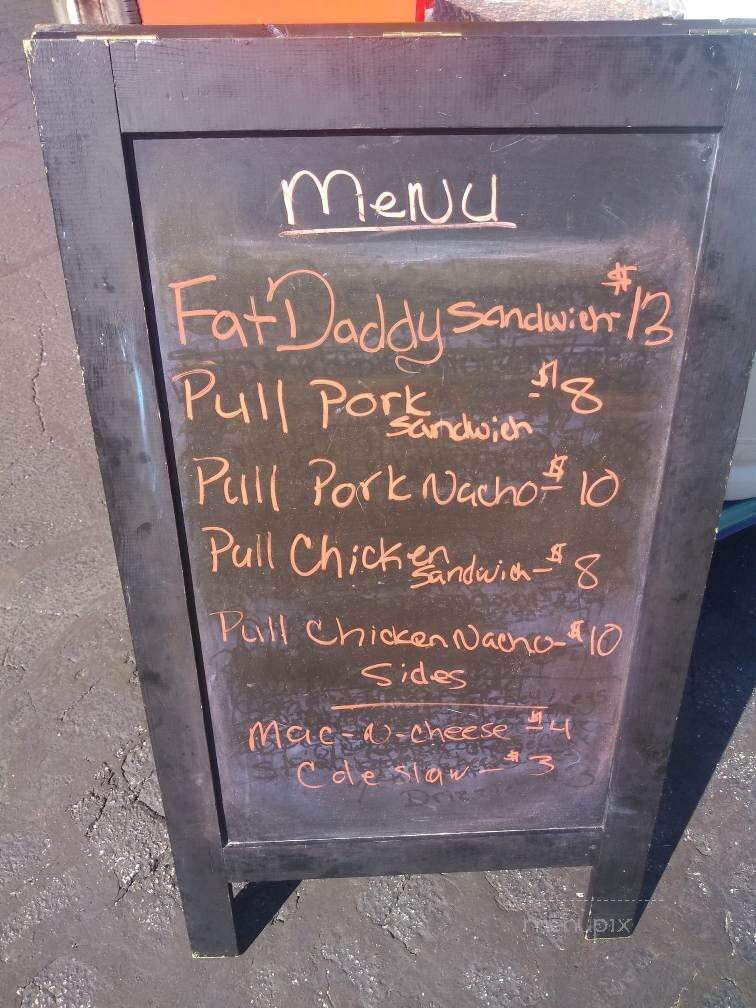 MeNU
Fat Daddy Sandwich - $13
Pull Pork Sandwich - $8
Pull Pork Nacho - $10
Pull Chicken Sandwich - $8
Pull Chicken Nacho - $10
Sides
Mac-N-cheese - $4
Cole slaw - $3
menupix